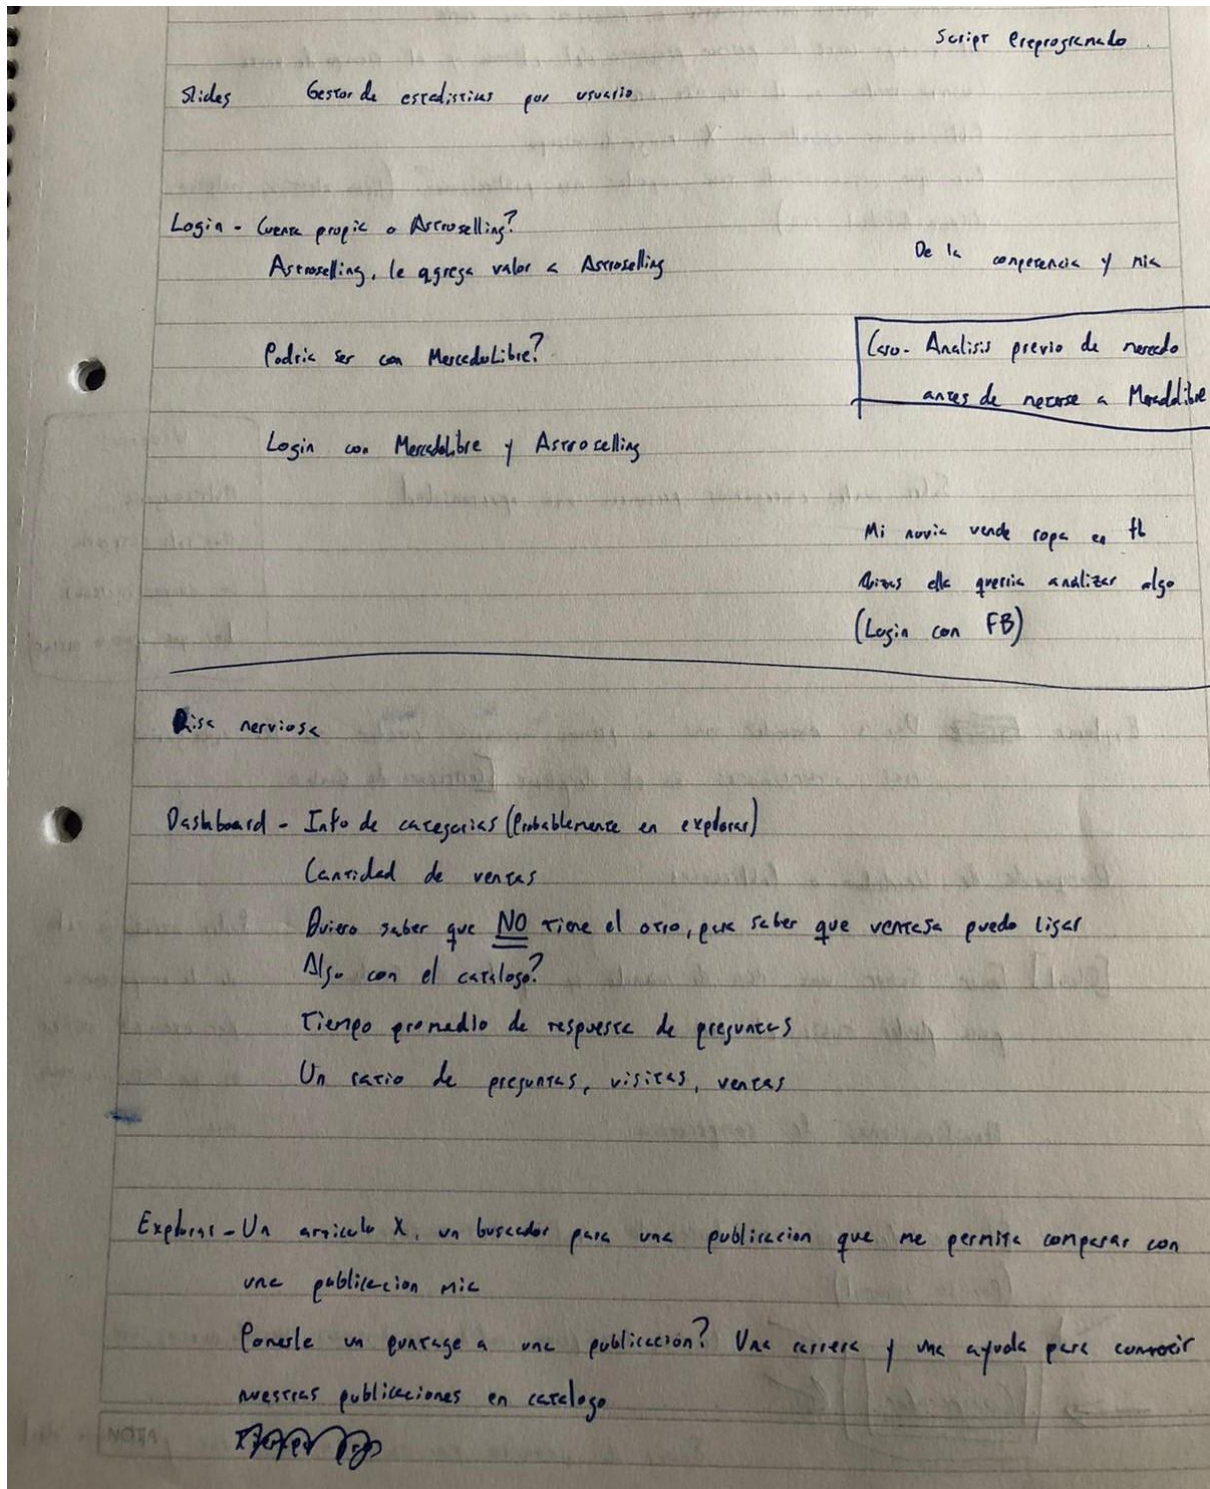 Script Preprogramado.
Slides Gestor de estadisticas por usuario
Login - Cuenta propia o Astroselling?
Astroselling, le agrega valor a Astroselling
De la competencia y mia
Podria ser con MercadoLibre?
Caso - Analisis previo de mercado
antes de meterse a MercadoLibre
Login con MercadoLibre y Astroselling
Mi novia vende ropa en fb
Quizas ella querria analizar algo
(Login con FB)
Risa nerviosa
Dashboard - Info de categorias (Probablemente en explorar)
Cantidad de ventas
Quiero saber que NO tiene el otro, para saber que ventaja puedo ligar
Algo con el catalogo?
Tiempo promedio de respuesta de preguntas
Un ratio de preguntas, visitas, ventas
Explorar - Un articulo X, un buscador para una publicacion que me permita comparar con
una publicacion mia
Ponerle un puntage a una publicacion? Una carrera y una ayuda para convertir
nuestras publicaciones en catalogo